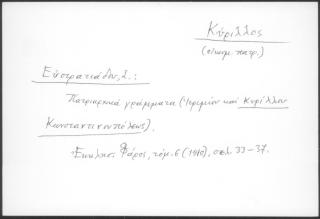 Κύριλλος
(οἰκουμ. πατρ.)
Εὐστρατιάδου, Σ.:
Πατριαρχικὰ γράμματα (Ἱερεμίου καὶ Κυρίλλου
Κωνσταντινουπόλεως).
Ἐκκλησ. Φάρος, τόμ. 6 (1910), σελ. 33-37.